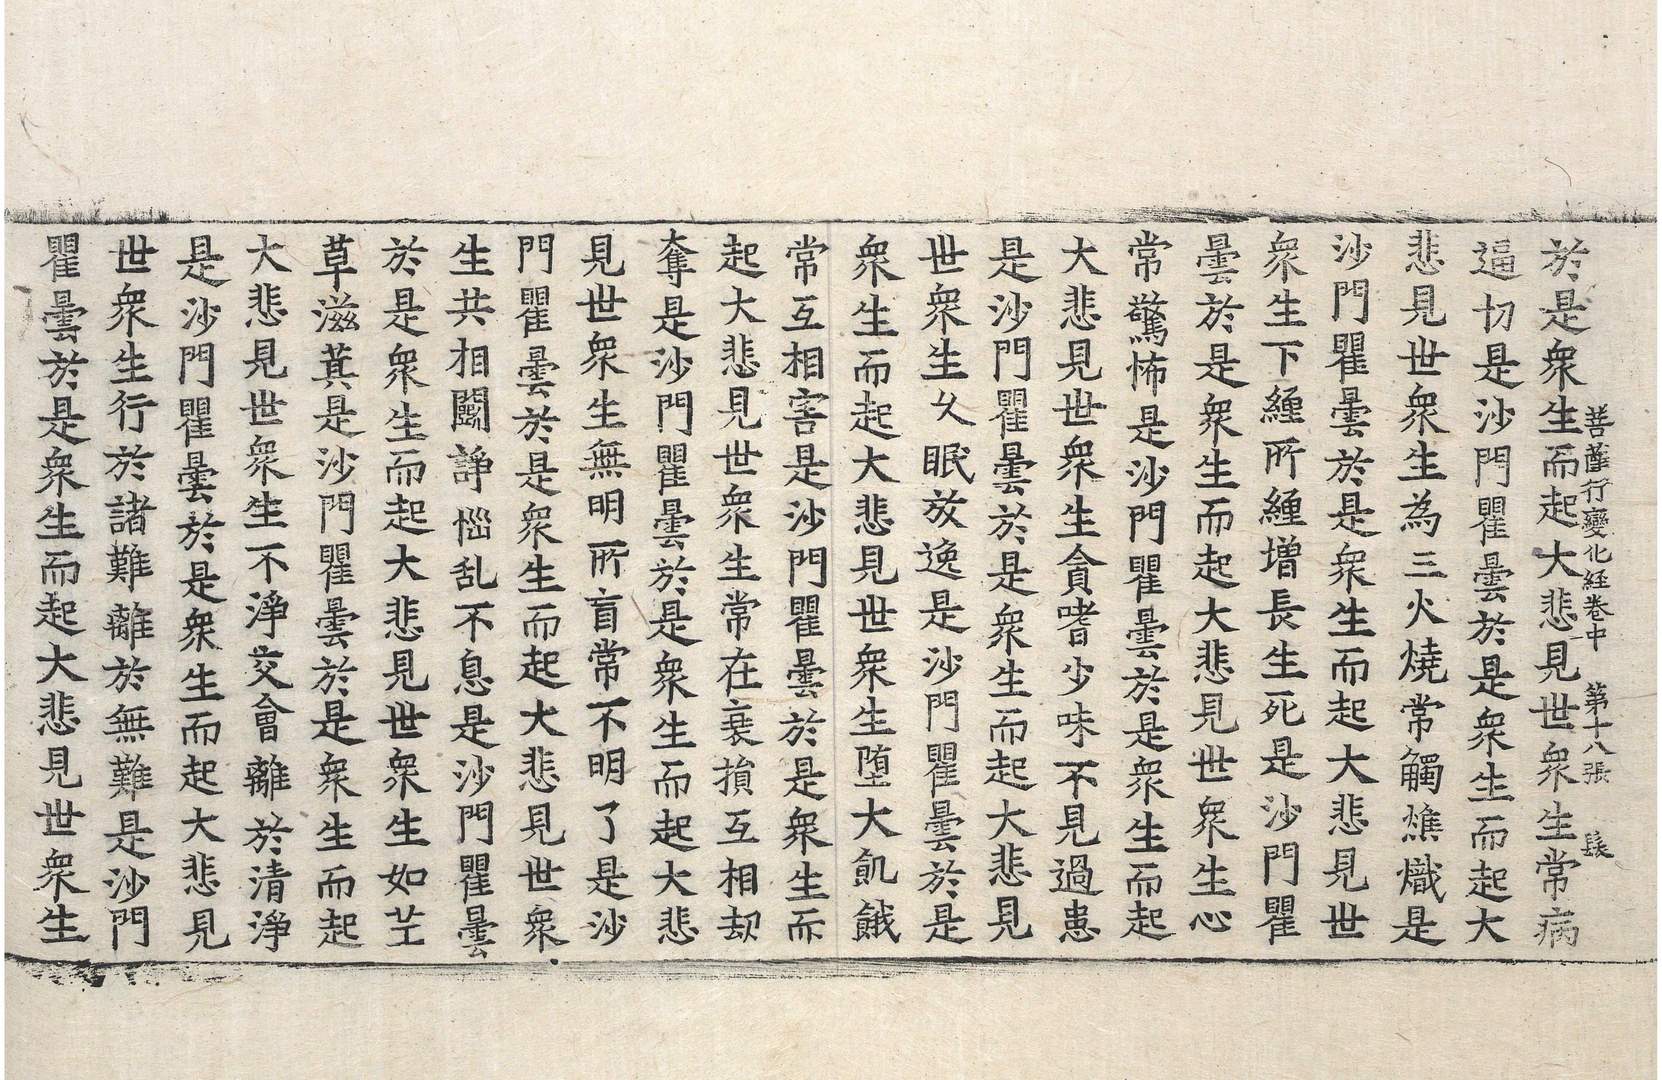 菩薩行變化経卷中 第十八張 髮
於是衆生而起大悲見世衆生常病
逼切是沙門瞿曇於是衆生而起大
悲見世衆生為三火燒常觸燋熾是
沙門瞿曇於是衆生而起大悲見世
衆生下纏所纏增長生死是沙門瞿
曇於是衆生而起大悲見世衆生心
常驚怖是沙門瞿曇於是衆生而起
大悲見世衆生貪嗜少味不見過患
是沙門瞿曇於是衆生而起大悲見
世衆生久眠放逸是沙門瞿曇於是
衆生而起大悲見世衆生堕大飢餓
常互相害是沙門瞿曇於是衆生而
起大悲見世衆生常在衰損互相劫
奪是沙門瞿曇於是衆生而起大悲
見世衆生無明所盲常不明了是沙
門瞿曇於是衆生而起大悲見世衆
生共相鬪諍惱乱不息是沙門瞿曇
於是衆生而起大悲見世衆生如芒
草滋萁是沙門瞿曇於是衆生而起
大悲見世衆生不淨交會離於清淨
是沙門瞿曇於是衆生而起大悲見
世衆生行於諸難離於無難是沙門
瞿曇於是衆生而起大悲見世衆生